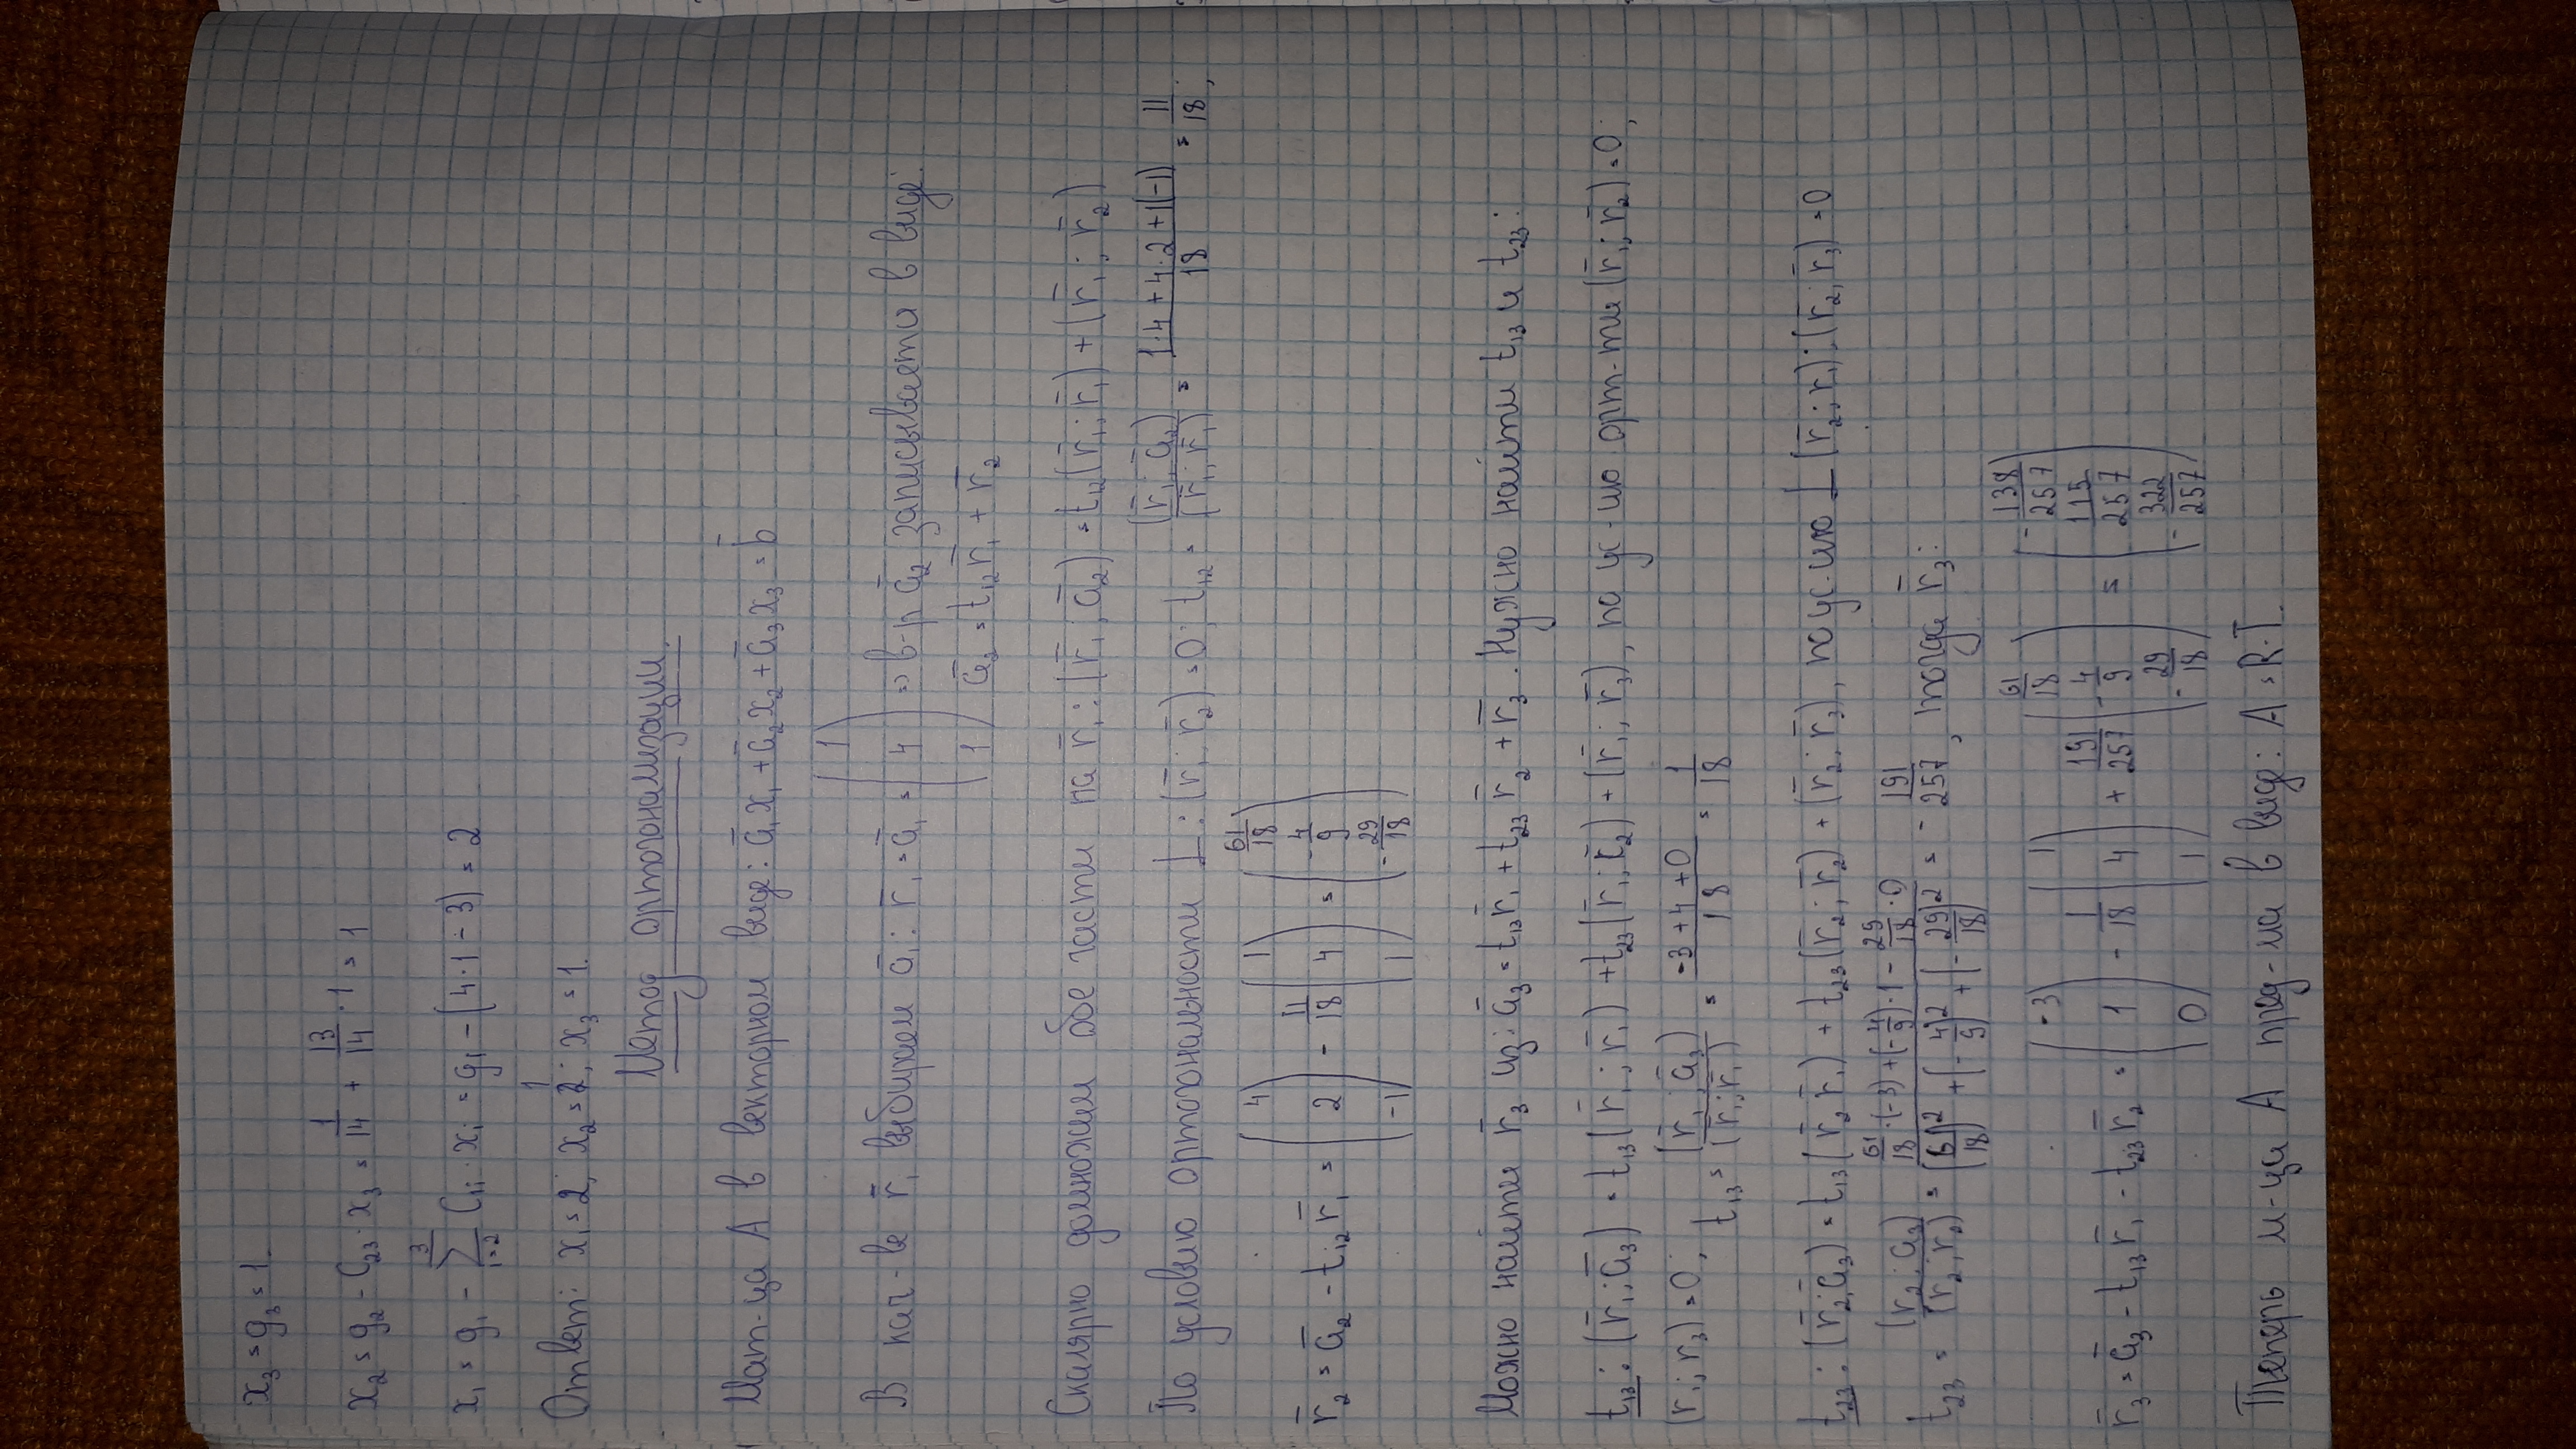 x₃ = g₃ = 1.
x₂ = g₂ - C₂₃ · x₃ = 1/14 + 13/14 · 1 = 1
x₁ = g₁ - ∑³ᵢ₌₂ C₁ᵢ · xᵢ = g₁ - (4·1 - 3) = 2
Ответ: x₁ = 2; x₂ = 1; x₃ = 1.
Метод ортогонализации.
Мат-ца A в векторном виде: a̅₁x₁ + a̅₂x₂ + a̅₃x₃ = b̅
В кач-ве r̅₁ выбираем a̅₁: r̅₁ = a̅₁ = (1 4 1) => в-р a̅₂ записывается в виде:
a̅₂ = t₁₂r̅₁ + r̅₂
Скалярно домножим обе части на r̅₁: (r̅₁; a̅₂) = t₁₂(r̅₁; r̅₁) + (r̅₁; r̅₂)
По условию ортогональности ⊥: (r̅₁; r̅₂) = 0; t₁₂ = (r̅₁; a̅₂)/(r̅₁; r̅₁) = (1·4 + 4·2 + 1(-1))/18 = 11/18;
r̅₂ = a̅₂ - t₁₂r̅₁ = (4 2 -1) - 11/18 (1 4 1) = (61/18 -4/9 -29/18)
Можно найти r̅₃ из: a̅₃ = t₁₃r̅₁ + t₂₃r̅₂ + r̅₃. Нужно найти t₁₃ и t₂₃:
t₁₃: (r̅₁; a̅₃) = t₁₃(r̅₁; r̅₁) + t₂₃(r̅₁; r̅₂) + (r̅₁; r̅₃), по ус-ию орт-ти (r̅₁; r̅₂) = 0;
(r₁; r₃) = 0; t₁₃ = (r̅₁; a̅₃)/(r̅₁; r̅₁) = (-3 + 4 + 0)/18 = 1/18
t₂₃: (r̅₂; a̅₃) = t₁₃(r̅₂ r̅₁) + t₂₃(r̅₂; r̅₂) + (r̅₂; r̅₃), по ус-ию ⊥ (r̅₂; r₁); (r̅₂; r̅₃) = 0
t₂₃ = (r₂; a₃)/(r₂; r₂) = (61/18 · (-3) + (-4/9) · 1 - 29/18 · 0)/((61/18)² + (-4/9)² + (-29/18)²) = -191/257, тогда r̅₃:
r̅₃ = a̅₃ - t₁₃r̅₁ - t₂₃r̅₂ = (-3 1 0) - 1/18 (1 4 1) + 191/257 (61/18 -4/9 -29/18) = (-138/257 115/257 -322/257)
Теперь м-ца A пред-ма в виде: A = R·T.